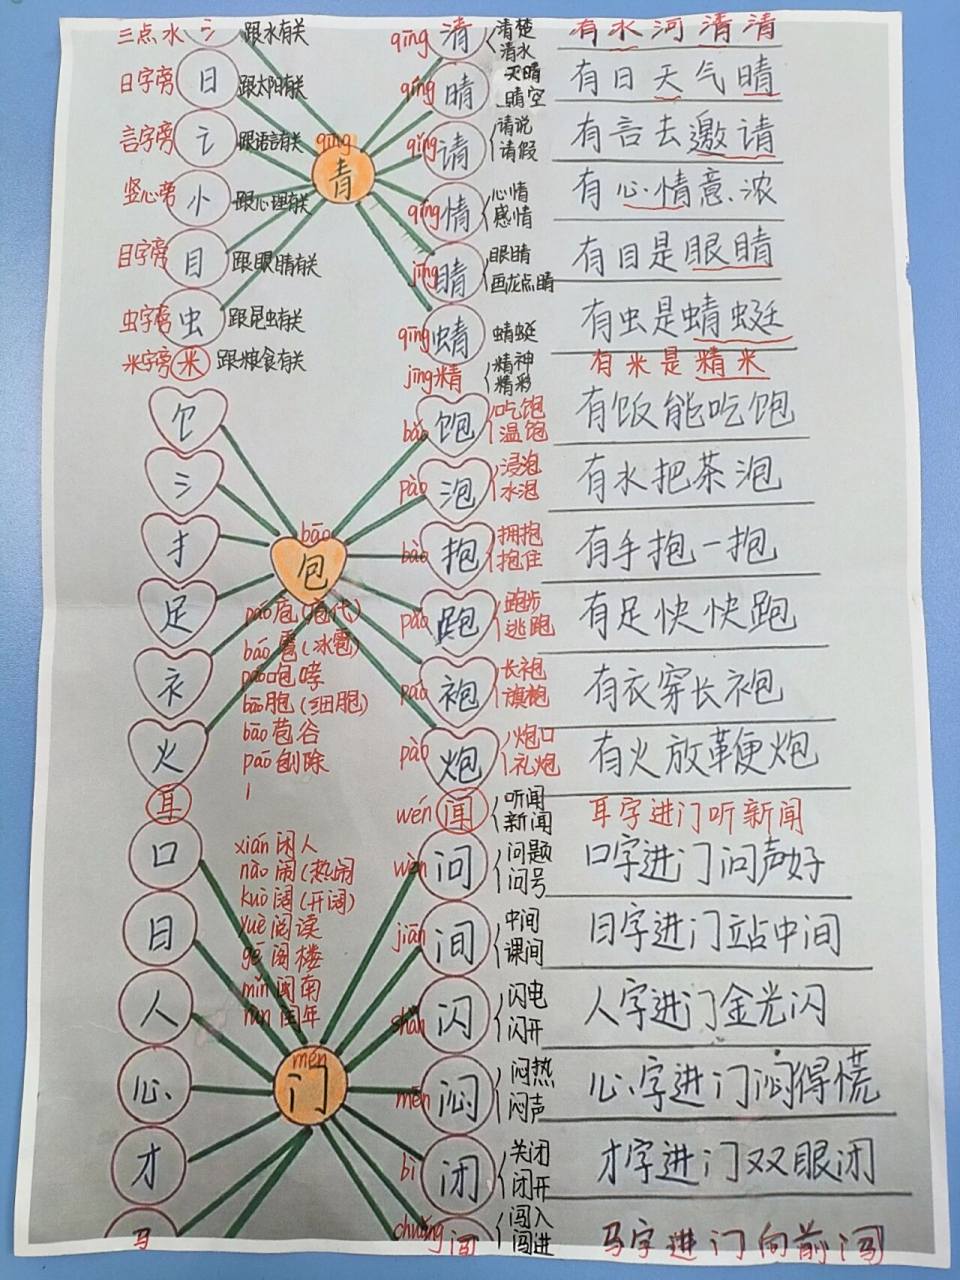 三点水 氵 跟水有关 qīng 清 清楚 清水 有水河清清
日字旁 日 跟太阳有关 qíng 晴 天晴 晴空 有日天气晴
言字旁 讠 跟语言有关 qīng 青 qǐng 请 请说 请假 有言去邀请
竖心旁 忄 跟心理有关 qíng 情 心情 感情 有心情意浓
目字旁 目 跟眼睛有关 jīng 睛 眼睛 画龙点睛 有目是眼睛
虫字旁 虫 跟昆虫有关 qīng 蜻 蜻蜓 有虫是蜻蜓
米字旁 米 跟粮食有关 jīng 精 精神 精彩 有米是精米
饣 bǎo 饱 吃饱 温饱 有饭能吃饱
氵 pào 泡 浸泡 水泡 有水把茶泡
扌 bāo 包 bào 抱 拥抱 抱住 有手抱一抱
足 páo 庖(庖代) pǎo 跑 跑步 逃跑 有足快快跑
báo 雹(冰雹)
衤 páo 咆哮 páo 袍 长袍 旗袍 有衣穿长袍
bāo 胞(细胞)
bāo 苞谷
火 páo 刨除 pào 炮 炮口 礼炮 有火放鞭炮
耳 wén 闻 听闻 新闻 耳字进门听新闻
口 xián 闲人 wèn 问 问题 问号 口字进门问声好
nào 闹(热闹
kuò 阔(开阔)
日 yuè 阅读 jiān 间 中间 课间 日字进门站中间
gé 阁楼
mǐn 闽南
人 rùn 闰年 shǎn 闪 闪电 闪开 人字进门金光闪
心 mén 门 mēn 闷 闷热 闷声 心字进门闷得慌
才 bì 闭 关闭 闭开 才字进门双眼闭
马 chuǎng 闯 闯入 闯进 马字进门向前闯